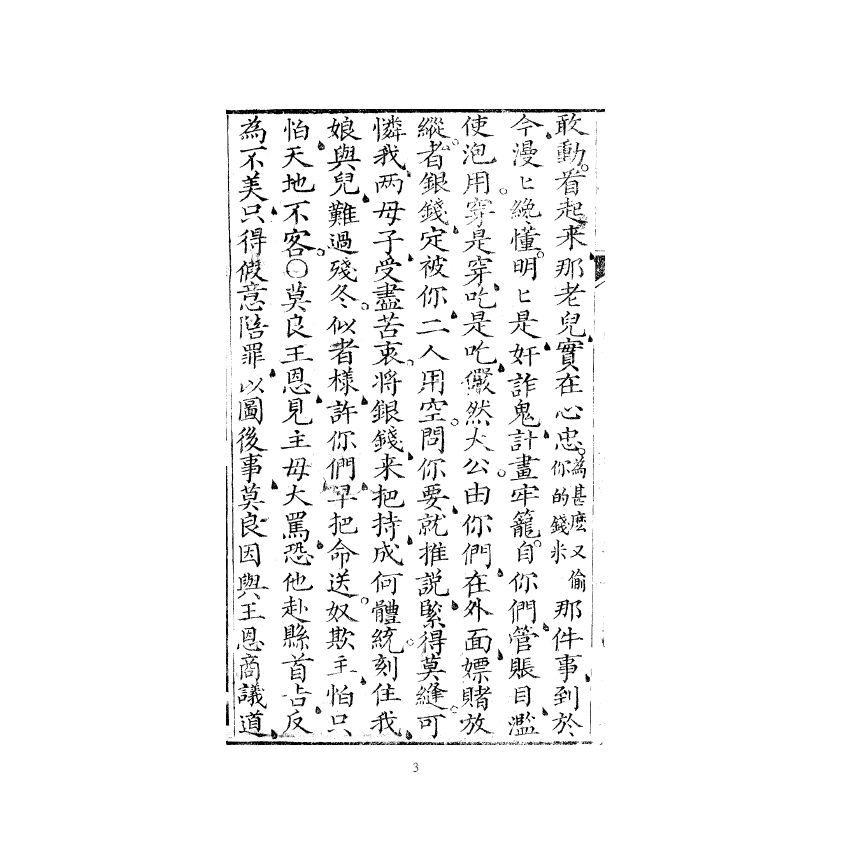 敢動。看起來那老兒實在心忠。為甚麼又偷你的錢米那件事到於
今漫匕纔懂。明匕是奸詐鬼計畫牢籠。自你們管賬目濫
使泡用。穿是穿吃是吃儼然大公。由你們在外面嫖賭放
縱。者銀錢定被你二人用空。問你要就推説緊得莫縫。可
憐我两母子受盡苦衷。将銀錢来把持成何體統。刻住我
娘與兒難過殘冬。似者樣許你們早把命送。奴欺主怕只
怕天地不客。〇莫良王恩見主母大罵恐他赴縣首占反
為不美只得假意陪罪以圖後事莫良因與王恩商議道
3